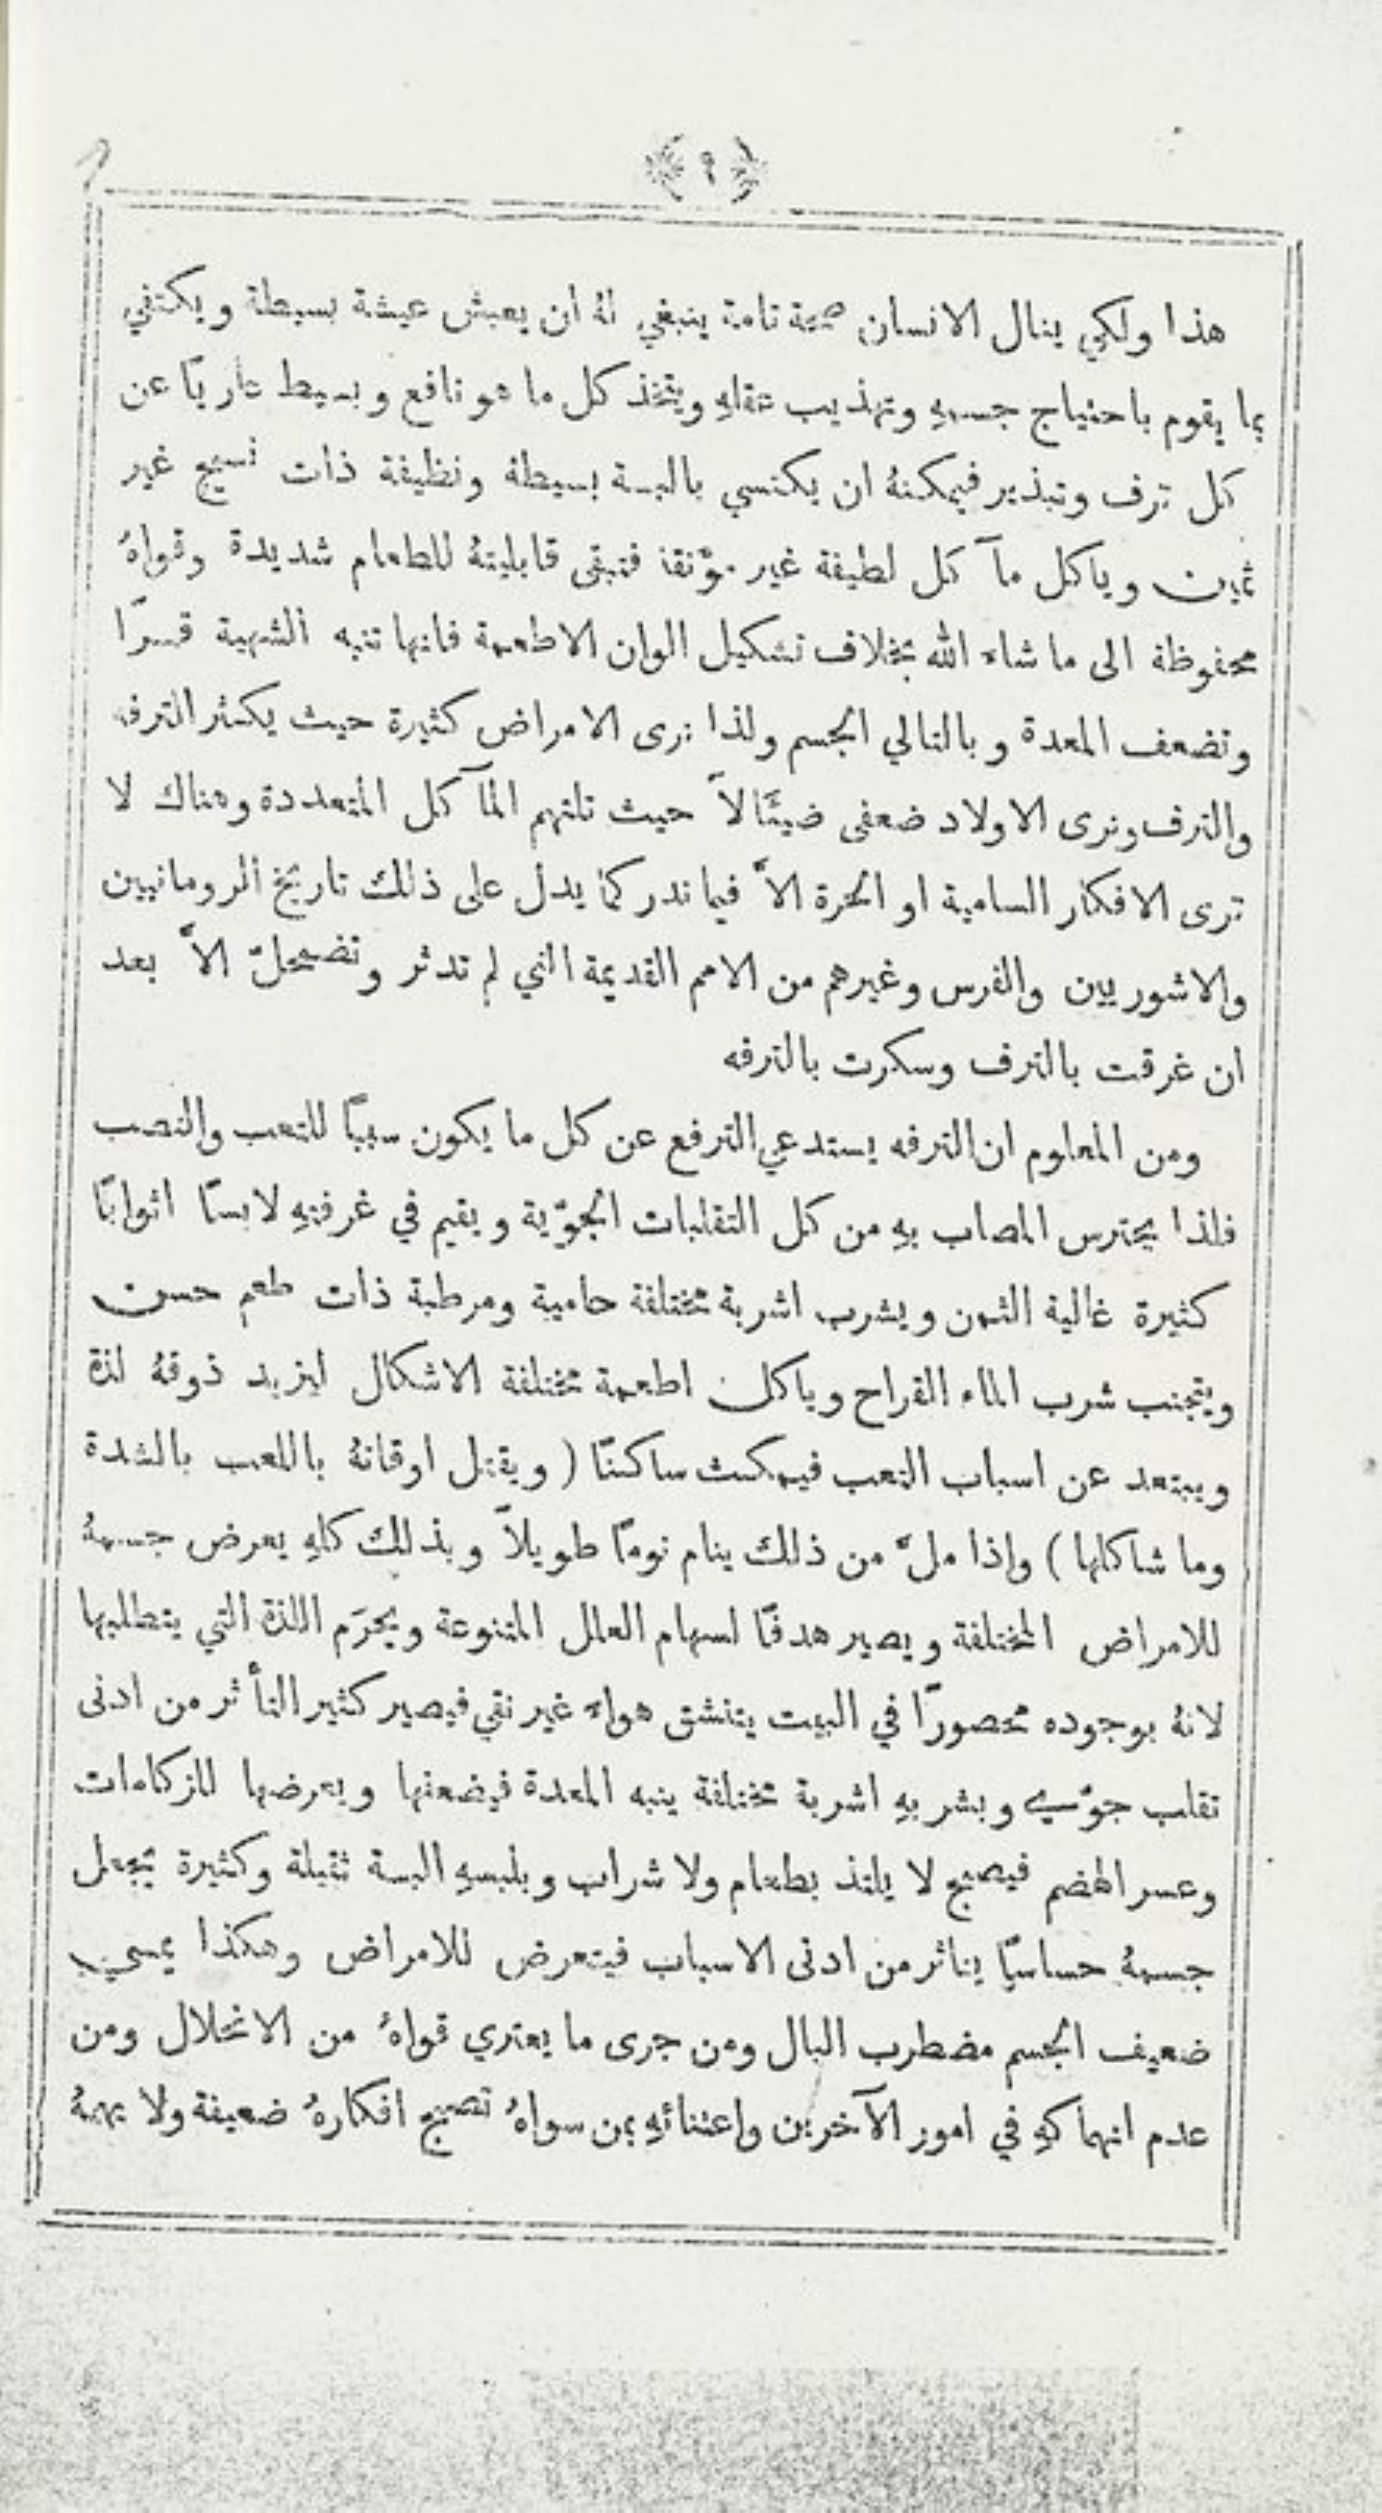 ﴿ ٩ ﴾
هذا ولكي ينال الانسان صحة تامة ينبغي لهُ ان يعيش عيشة بسيطة ويكتفي
بما يقوم باحتياج جسمهِ وتهذيب عقلهِ ويتخذ كل ما هو نافع وبسيط عاريًا عن
كل ترف وتبذير فيمكنهُ ان يكتسي بالبسة بسيطة ونظيفة ذات نسيج غير
ثمين وياكل مآكل لطيفة غير مؤنقة فتبقى قابليتهُ للطعام شديدة وقواهُ
محفوظة الى ما شاء الله بخلاف تشكيل الوان الاطعمة فانها تنبه الشهية قسرًا
وتضعف المعدة وبالتالي الجسم ولذا نرى الامراض كثيرة حيث يكثر الترفه
والترف ونرى الاولاد ضعفى ضيئالاً حيث تلتهم المآكل المتعددة وهناك لا
نرى الافكار السامية او الحرة الاَّ فيما ندر كما يدل على ذلك تاريخ الرومانيين
والاشوريين والفرس وغيرهم من الامم القديمة التي لم تدثر وتضمحلّ الاَّ بعد
ان غرقت بالترف وسكرت بالترفه
ومن المعلوم ان الترفه يستدعي الترفع عن كل ما يكون سببًا للتعب والنصب
فلذا يحترس المصاب بهِ من كل التقلبات الجوّية ويقيم في غرفتهِ لابسًا اثوابًا
كثيرة غالية الثمن ويشرب اشربة مختلفة حامية ومرطبة ذات طعم حسن
ويتجنب شرب الماء القراح وياكل اطعمة مختلفة الاشكال ليزيد ذوقهُ لذة
ويبتعد عن اسباب التعب فيمكث ساكنًا ( ويقتل اوقاتهُ باللعب بالشدة
وما شاكلها ) واذا ملّ من ذلك ينام نومًا طويلاً وبذلك كلهِ يعرض جسمهُ
للامراض المختلفة ويصير هدفًا لسهام العلل المتنوعة ويحرَم اللذة التي يتطلبها
لانهُ بوجوده محصورًا في البيت يتنشق هواء غير نقي فيصير كثير التأثر من ادنى
تقلب جوّي وبشربهِ اشربة مختلفة ينبه المعدة فيضعفها ويعرضها للزكامات
وعسر الهضم فيصبح لا يلتذ بطعام ولا شراب وبلبسهِ البسة ثقيلة وكثيرة يجعل
جسمهُ حساسيًا يتاثر من ادنى الاسباب فيتعرض للامراض وهكذا يمسي
ضعيف الجسم مضطرب البال ومن جرى ما يعتري قواهُ من الانحلال ومن
عدم انهماكهِ في امور الآخرين واعتنائهِ بمن سواهُ تصبح افكارهُ ضعيفة ولا يهمهُ